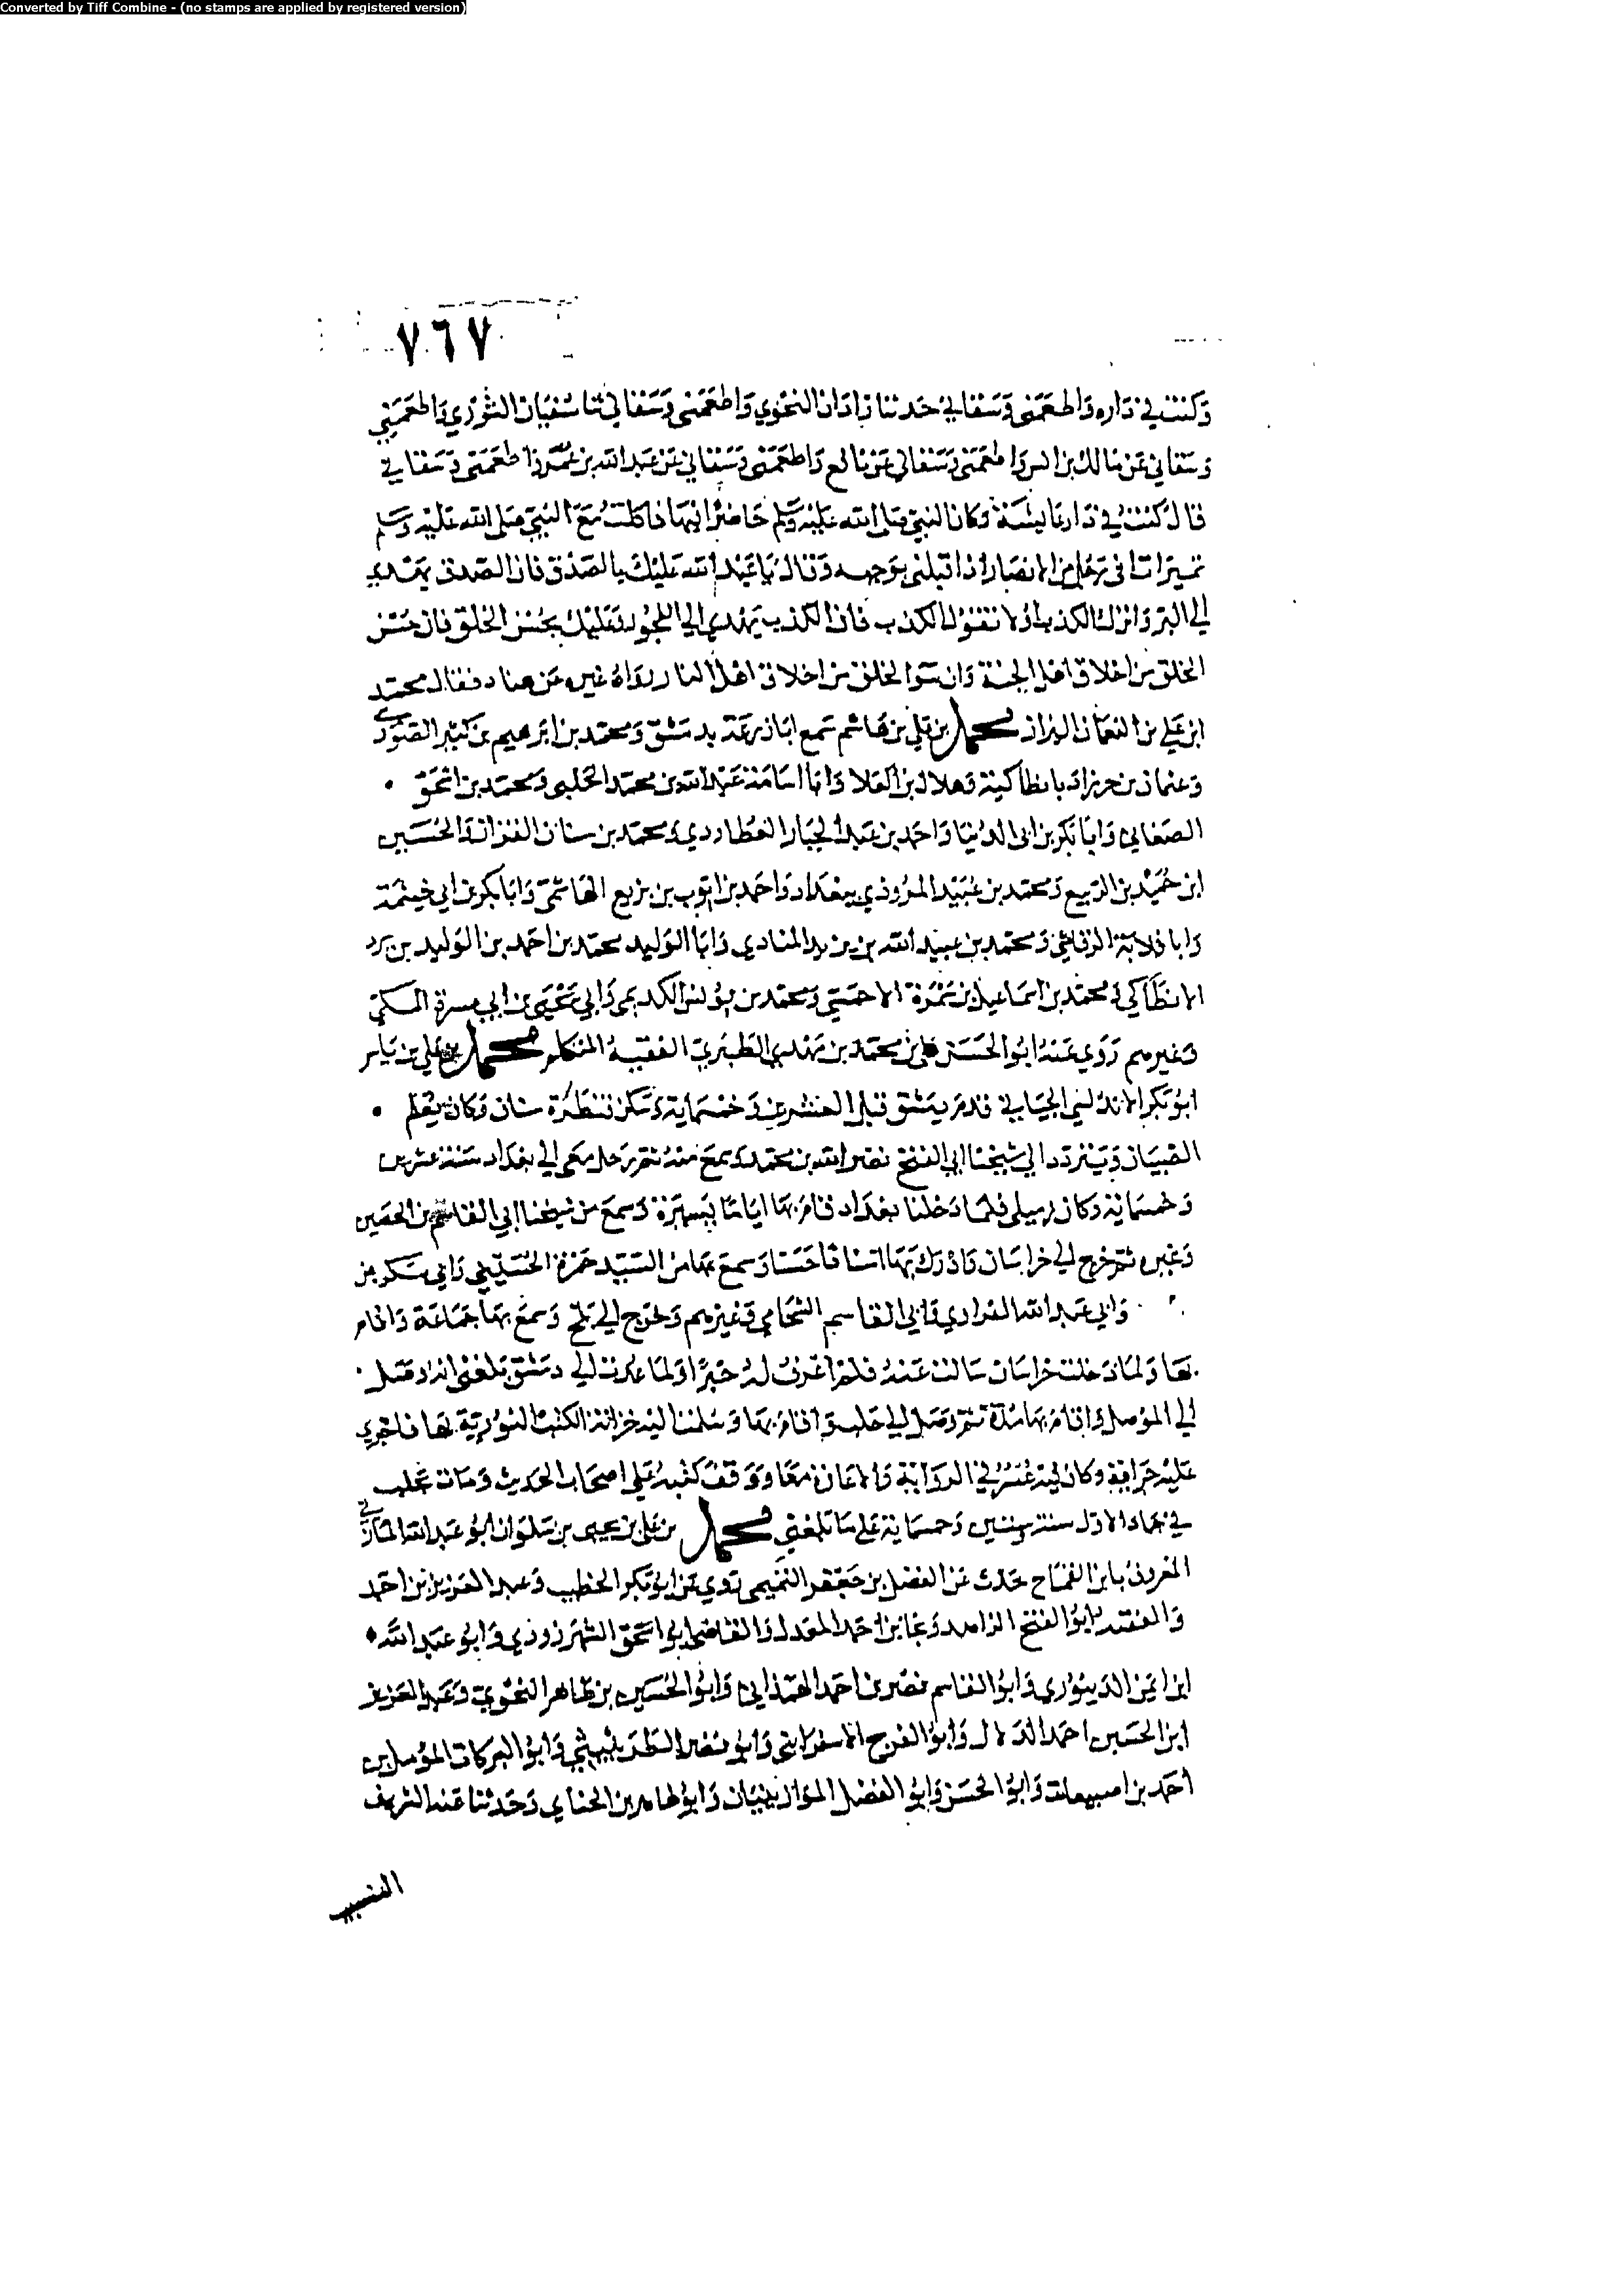 Converted by Tiff Combine - (no stamps are applied by registered version)
٧٦٧
وكنت في داره واطعمني وسقاني حدثنا زاذان النحوي واطعمني وسقاني ثنا سفيان الثوري واطعمني
وسقاني عن مالك بن انس واطعمني وسقاني عن نافع واطعمني وسقاني عن عبد الله بن عمر واطعمني وسقاني
قال كنت في دار عايشة وكان النبي صلى الله عليه وسلم حاضرا فيها فاكلت مع النبي صلى الله عليه وسلم
تميرات رجل من الانصار اذ اقبلني بوجهه وقال يا عبد الله عليك بالصدق فان الصدق يهدي
الى البر واترك الكذب ولا تقول الكذب فان الكذب يهدي الى الفجور وعليك بحسن الخلق فان حسن
الخلق من اخلاق اهل الجنة وان سوا الخلق من اخلاق اهل النار رواه غيره عن هناد فقال محمد
ابن علي بن النعمان البزاز محمد بن علي بن هاشم سمع ابا زرعة بدمشق ومحمد بن ابرهيم بن كثير الصوري
وعثمان بن خرزاد بانطاكية وهلال بن العلا وابا اسامة عبد الله بن محمد الحلبي ومحمد بن اسحق
الصغاني وابا بكر بن ابي الدنيا واحمد بن عبد الجبار العطاردي ومحمد بن سنان القزاز والحسين
ابن حميد بن الربيع ومحمد بن عبيد المروذي ببغداد واحمد بن ايوب بن بزيع الهاشمي وابا بكر بن ابي خيثمة
وابا قلابة الرقاشي ومحمد بن عبيد الله بن يزيد المنادي وابا الوليد محمد بن احمد بن الوليد بن برد
الانطاكي ومحمد بن اسماعيل بن سمرة الاحمسي ومحمد بن يونس الكديمي وابي يحيى بن ابي مسرة المكي
وغيرهم روى عنه ابو الحسن علي بن محمد بن مهدي الطبري الفقيه المتكلم محمد بن علي بن ياسر
ابو بكر الاندلسي الجياني قدم دمشق قبل العشرين وخمسماية وسكن قنطرة سنان وكان يعلم
الصبيان ويتردد الى شيخنا ابي الفتح نصر الله بن محمد وسمع منه ثم رحل معي الى بغداد سنة عشرين
وخمسماية وكان زميلي فلما دخلنا بغداد قام بها اياما يسيرة وسمع من شيخنا ابي القاسم بن الحصين
وغيره ثم خرج الى خراسان وادرك بها اسنادا حسنا وسمع بها من السيد حمزة الحسيني وابي بكر بن
وابي عبد الله الفراوي وابي القاسم الشحامي وغيرهم وخرج الى بلخ وسمع بها جماعة واقام
بها ولما دخلت خراسان سالت عنه فلم اعرف له خبرا ولما عدت الى دمشق بلغني انه وصل
الى الموصل واقام بها مدة ثم وصل الى حلب واقام بها وسلمنا اليه خزانة الكتب النورية بها فاجري
عليه جراية وكان فيه عسر في الرواية والاعارة معا ووقف كتبه على اصحاب الحديث ومات بحلب
في جمادالاول سنة وستين وخمسماية على ما بلغني محمد بن علي بن يحيى بن سلوان ابو عبد الله المازني
المعروف بابن القماح حدث عن الفضل بن جعفر التميمي روى عن ابو بكر الخطيب وعبد العزيز بن احمد
والفقيه ابو الفتح الزاهد ونجا بن احمد المعدل والقاضي ابو اسحق الشهرزوري وابو عبد الله
ابن ايمن الدينوري وابو القاسم نصر بن احمد الهمذاني وابو الحسين بن طاهر النحوي وعبد العزيز
ابن الحسين احمد الدلال وابو الفرج الاسفرايني وابو نصر الطريثيثي وابو البركات المؤمل بن
احمد بن اصبهلات وابو الحسن وابو الفضل الموازينيان وابو طاهر بن الحناي وحدثنا عنه الشريف
النسيب